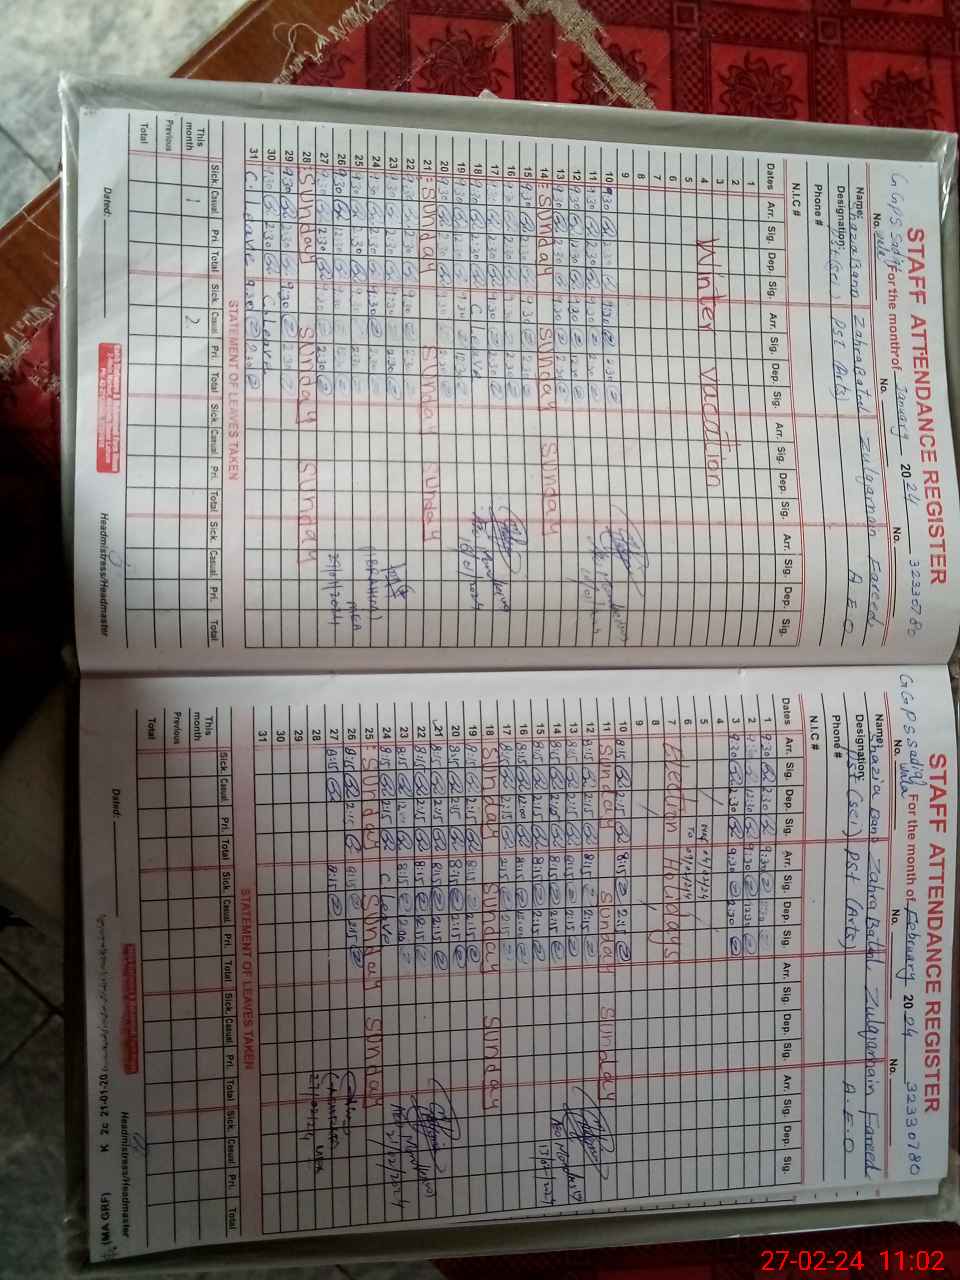 STAFF ATTENDANCE REGISTER
GGPS Sadiq wala For the month of January 2024 No. 32330780
No. No.
Name: Shazia Bano Zahra Batool Zulqarnain Fareed
Designation: PST (Sci) PST (Arts) A E O
Phone #
N.I.C #
Dates Arr. Sig. Dep. Sig. Arr. Sig. Dep. Sig. Arr. Sig. Dep. Sig. Arr. Sig. Dep. Sig.
1
2
3
4 Winter vacation
5
6
7
8
9
10 9:30 2:30 9:30 2:30
11 9:30 2:30 9:30 2:30
12 9:30 12:30 9:30 12:30
13 9:30 2:30 9:30 2:30
14 Sunday Sunday Sunday
15 9:30 2:30 9:30 2:30
16 9:30 2:30 9:30 2:30
17 9:30 2:30 9:30 2:30
18 9:30 2:30 C. Leave
19 9:30 12:30 9:30 12:30
20 9:30 2:30 9:30 2:30
21 Sunday Sunday Sunday
22 9:30 2:30 9:30 2:30
23 9:30 2:30 9:30 2:30
24 9:30 2:30 9:30 2:30
25 9:30 2:30 9:30 2:30
26 9:30 12:30 9:30 12:30
27 9:30 2:30 9:30 2:30
(IBRAHIM)
MEA
28 Sunday Sunday Sunday
29 9:30 2:30 9:30 2:30
30 9:30 2:30 C. Leave
31 C. Leave 9:30 2:30
STATEMENT OF LEAVES TAKEN
Sick. Casual Pri. Total Sick. Casual Pri. Total Sick. Casual Pri. Total Sick. Casual Pri. Total
This month 1 2
Previous
Total
Dated: Headmistress/Headmaster
STAFF ATTENDANCE REGISTER
GGPS Sadiq wala For the month of February 2024 No. 32330780
No. No.
Name: Shazia Bano Zahra Batool Zulqarnain Fareed
Designation: PST (Sci) PST (Arts) A.E.O
Phone #
N.I.C #
Dates Arr. Sig. Dep. Sig. Arr. Sig. Dep. Sig. Arr. Sig. Dep. Sig. Arr. Sig. Dep. Sig.
1 9:30 2:30 9:30
2 9:30 12:30 9:30 12:30
3 9:30 2:30 9:30 2:30
4
5
6 To
7 Election Holidays
8
9
10 8:15 2:15 8:15 2:15
11 Sunday Sunday Sunday
12 8:15 2:15 8:15 2:15
13 8:15 2:15 8:15 2:15
14 8:15 2:15 8:15 2:15
15 8:15 2:15 8:15 2:15
16 8:15 12:00 8:15 12:00
17 8:15 2:15 8:15 2:15
18 Sunday Sunday Sunday
19 8:15 2:15 8:15 2:15
20 8:15 2:15 8:15 2:15
21 8:15 2:15 8:15 2:15
22 8:15 2:15 8:15 2:15
23 8:15 12:00 8:15 12:00
24 8:15 2:15 C Leave
25 Sunday Sunday Sunday
26 8:15 2:15 8:15 2:15
27 8:15 8:15
28
29
30
31
STATEMENT OF LEAVES TAKEN
Sick. Casual Pri. Total Sick. Casual Pri. Total Sick. Casual Pri. Total Sick. Casual Pri. Total
This month
Previous
Total
Dated: Headmistress/Headmaster
27-02-24 11:02